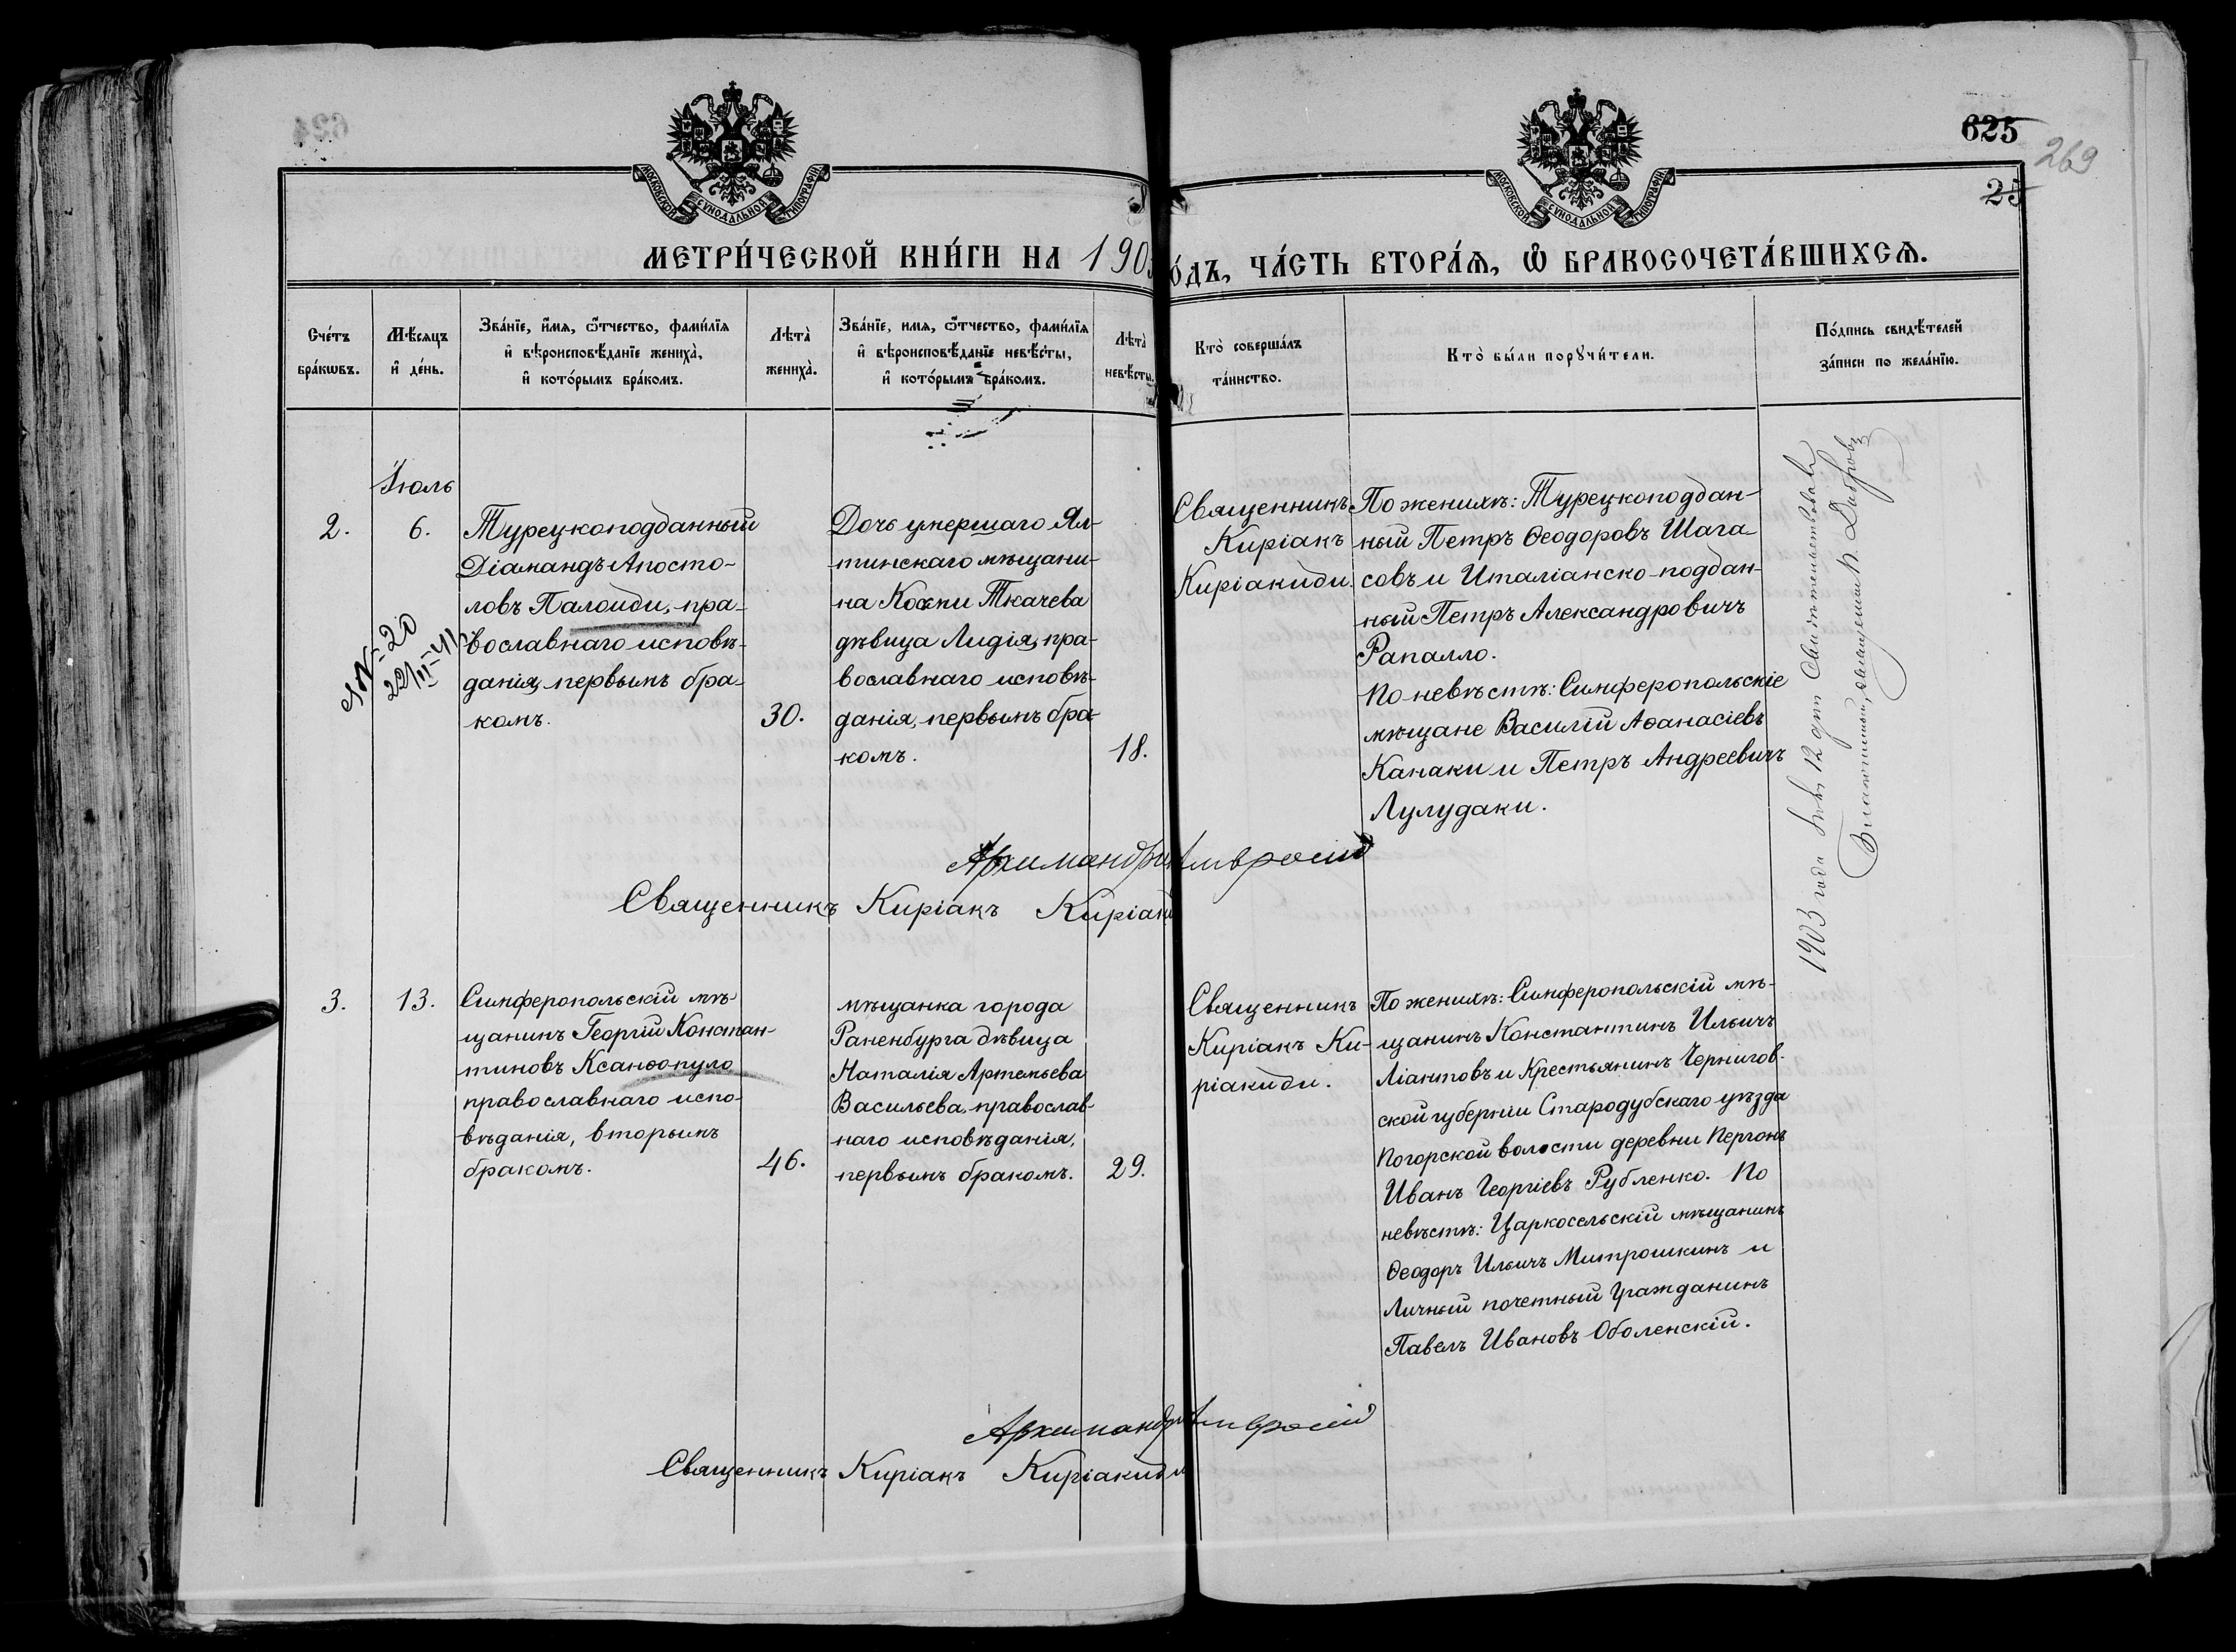 625
269
25
МОСКОВСКОЙ СѴНОДАЛЬНОЙ ТИПОГРАФІИ
МОСКОВСКОЙ СѴНОДАЛЬНОЙ ТИПОГРАФІИ
МЕТРИ́ЧЕСКОЙ КНИ́ГИ НА 190
О́ДЪ, ЧА́СТЬ ВТОРА́Ѧ, Ѽ БРАКОСОЧЕТА́ВШИХСѦ.
Сче́тъ
бра́кѡвъ.
Мѣ́сяцъ
и҆ де́нь.
Зва́нїе, и҆́мѧ, ѻ҆́тчество, фами́лїѧ
и҆ вѣроисповѣ́данїе жениха̀,
и҆ кото́рымъ бра́комъ.
Лѣта̀
жениха̀.
Зва́нїе, имѧ, ѻ҆́тчество, фами́лїѧ
и҆ вѣроисповѣ́данїе невѣ́сты,
и҆ кото́рымъ бра́комъ.
Лѣта̀
невѣ́сты.
Кто̀ соверша́лъ
та́инство.
Кто̀ бы́ли порꙋчи́тели.
По́дпись свидѣ́телей
за́писи по жела́нїю.
Іюль
2.
6.
Турецкоподданный
Діамандъ Апосто-
ловъ Палоиди, пра-
вославнаго исповѣ-
данія, первымъ бра-
комъ.
30.
№-20
22/III-41
Дочь умершаго Ял-
тинскаго мѣщани-
на Козьмы Ткачева
дѣвица Лидія, пра-
вославнаго исповѣ-
данія, первымъ бра-
комъ.
18.
Священникъ
Киріакъ
Киріакиди.
По женихѣ: Турецкоподдан-
ный Петръ Ѳеодоровъ Шага-
совъ и Италіанско-поддан-
ный Петръ Александровичъ
Рапалло.
По невѣстѣ: Симферопольскіе
мѣщане Василій Аѳанасіевъ
Канаки и Петръ Андреевичъ
Лулудаки.
1903 года 12 дня Свидѣтельствовалъ
Благочинный, священникъ Н.
Архимандритъ Амвросій
Священникъ Киріакъ Киріаки
3.
13.
Симферопольскій мѣ-
щанинъ Георгій Констан-
тиновъ Ксанѳопуло
православнаго испо-
вѣданія, вторымъ
бракомъ.
46.
мѣщанка города
Раненбурга дѣвица
Наталія Артемьева
Васильева, православ-
наго исповѣданія,
первымъ бракомъ.
29.
Священникъ
Киріакъ Ки-
ріакиди.
По женихѣ: Симферопольскій мѣ-
щанинъ Константинъ Ильичъ
Ліантовъ и Крестьянинъ Чернигов-
ской губерніи Стародубскаго уѣзда
Погорской волости деревни Пергонъ
Иванъ Георгіевъ Рубленко. По
невѣстѣ: Царкосельскій мѣщанинъ
Ѳеодоръ Ильичъ Митрошкинъ и
Личный почетный Гражданинъ
Павелъ Ивановъ Оболенскій.
Архимандритъ Амвросій
Священникъ Киріакъ Киріакиди